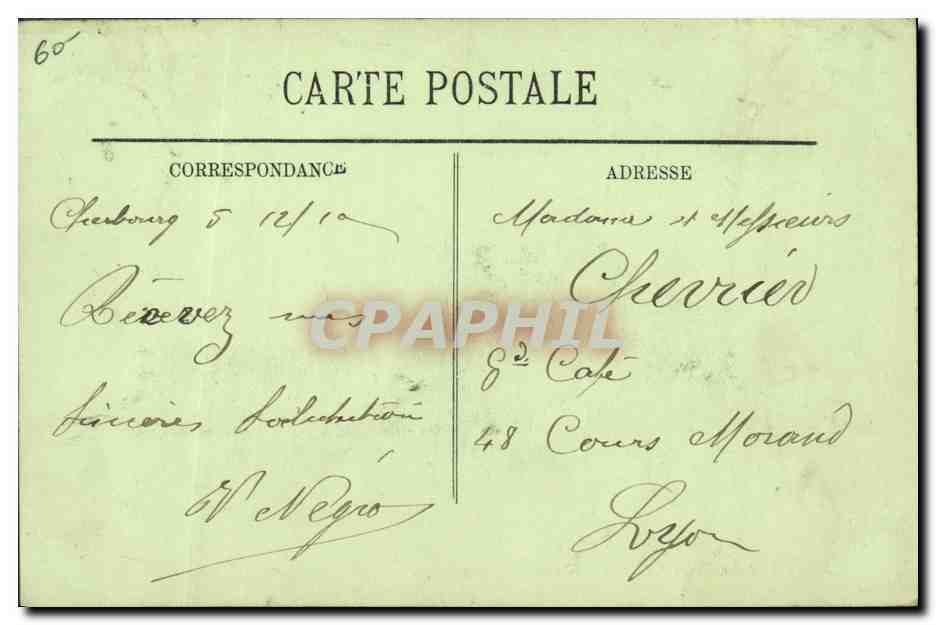 60
CARTE POSTALE
CORRESPONDANCE
Cherbourg 5 12/10
Recevez nos
sincères Salutation
V Négro
ADRESSE
Madame et Messieurs
Chevrier
Gd Café
48 Cours Morand
Lyon
CPAPHIL